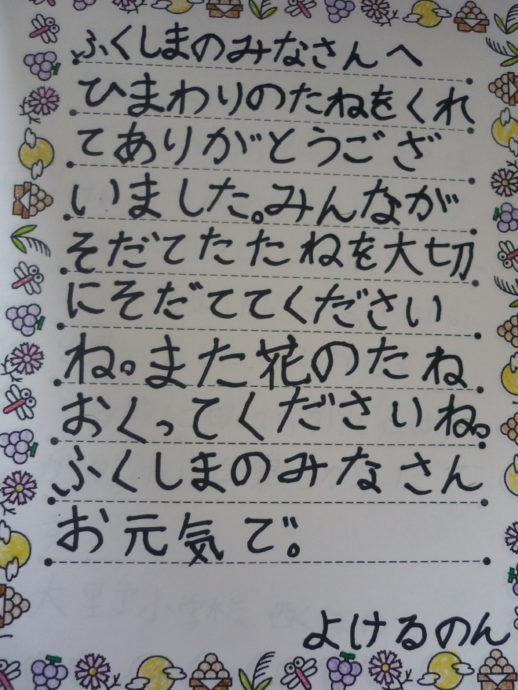 ふくしまのみなさんへ
ひまわりのたねをくれ
てありがとうござ
いました。みんなが
そだてたたねを大切
にそだててください
ね。また花のたね
おくってくださいね。
ふくしまのみなさん
お元気で。
よけるのん